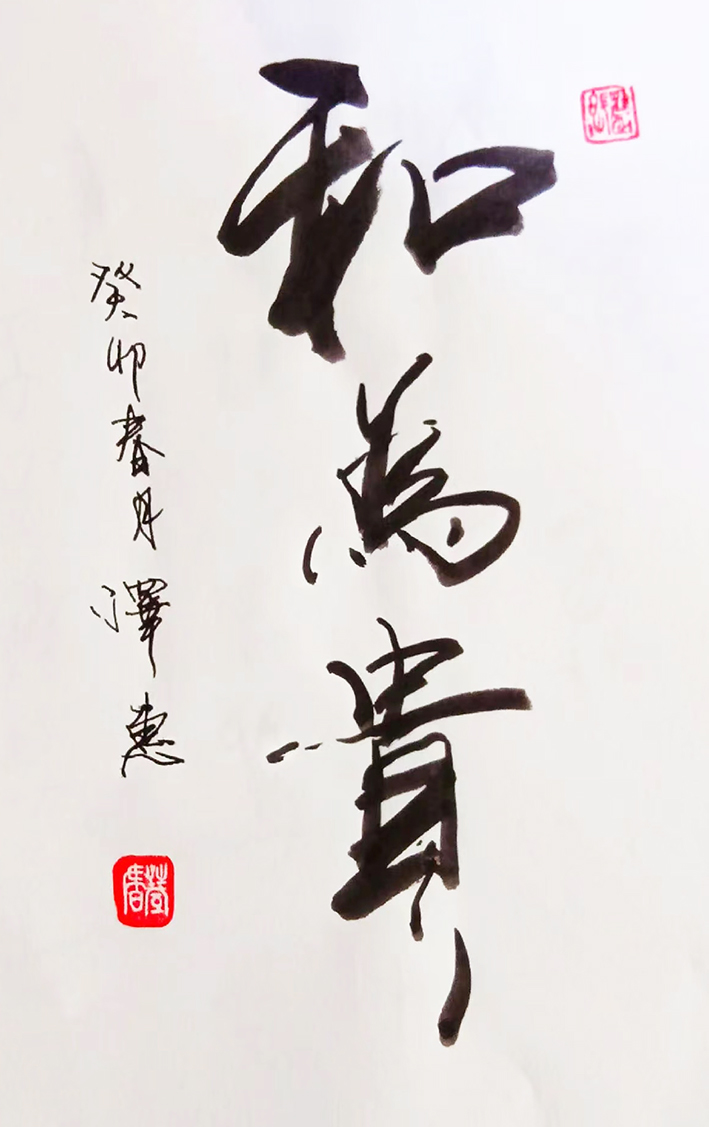 和為貴
癸卯春月澤惠